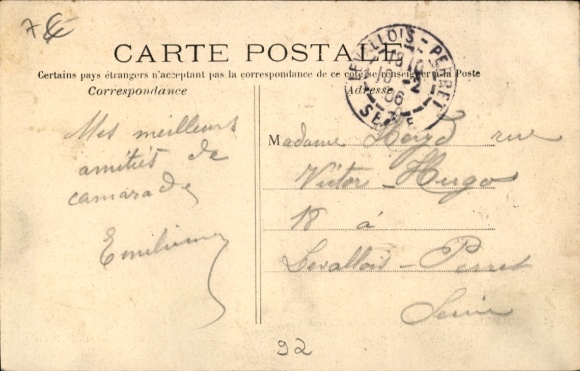 7€
CARTE POSTALE
Certains pays étrangers n'acceptant pas la correspondance de ce côté se renseigner à la Poste
Correspondance
Adresse
LEVALLOIS-PERRET
SEINE
Mes meilleurs
amitiés de
camarade
Madame rue
Victor-Hugo
18 à
Levallois-Perret
Seine
92